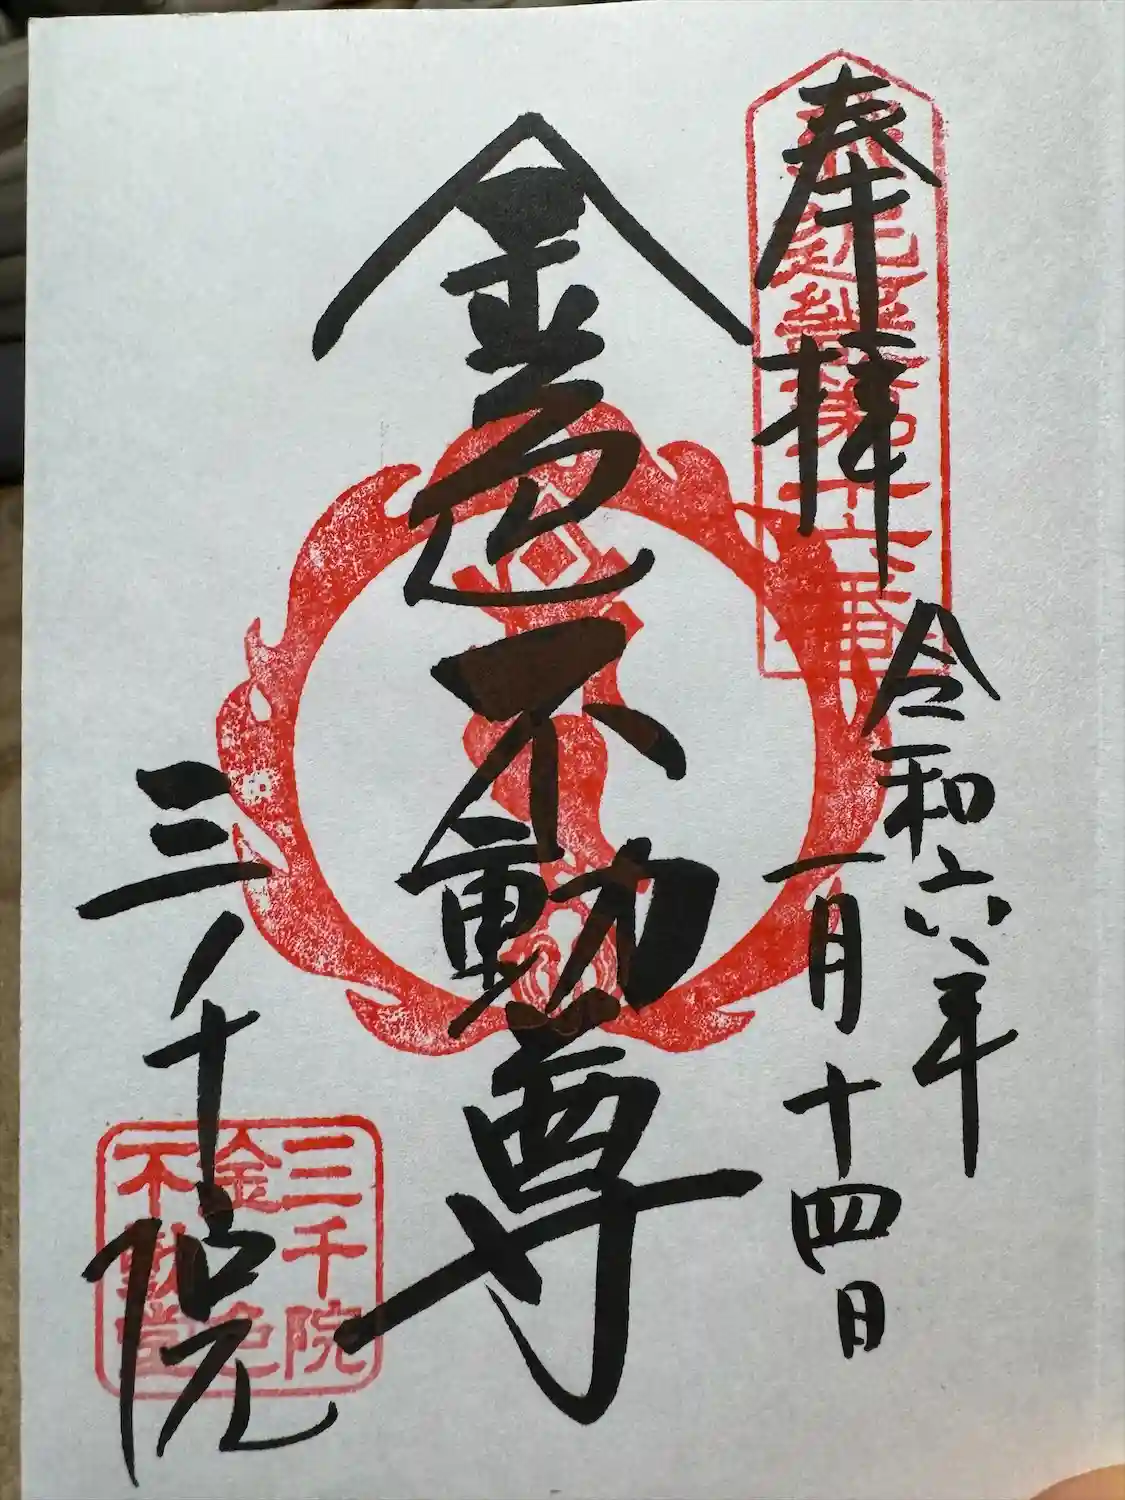 奉拝
近畿第十六番
令和六年
一月十四日
金色不動尊
三千院
三千院
金色
不動堂